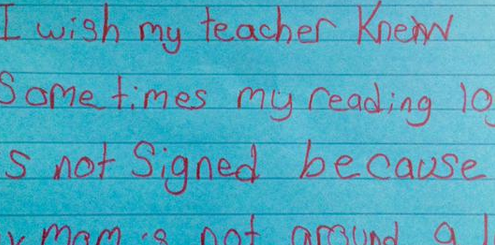 I wish my teacher Knew
Sometimes my reading lo
s not Signed because
mom is not around a l